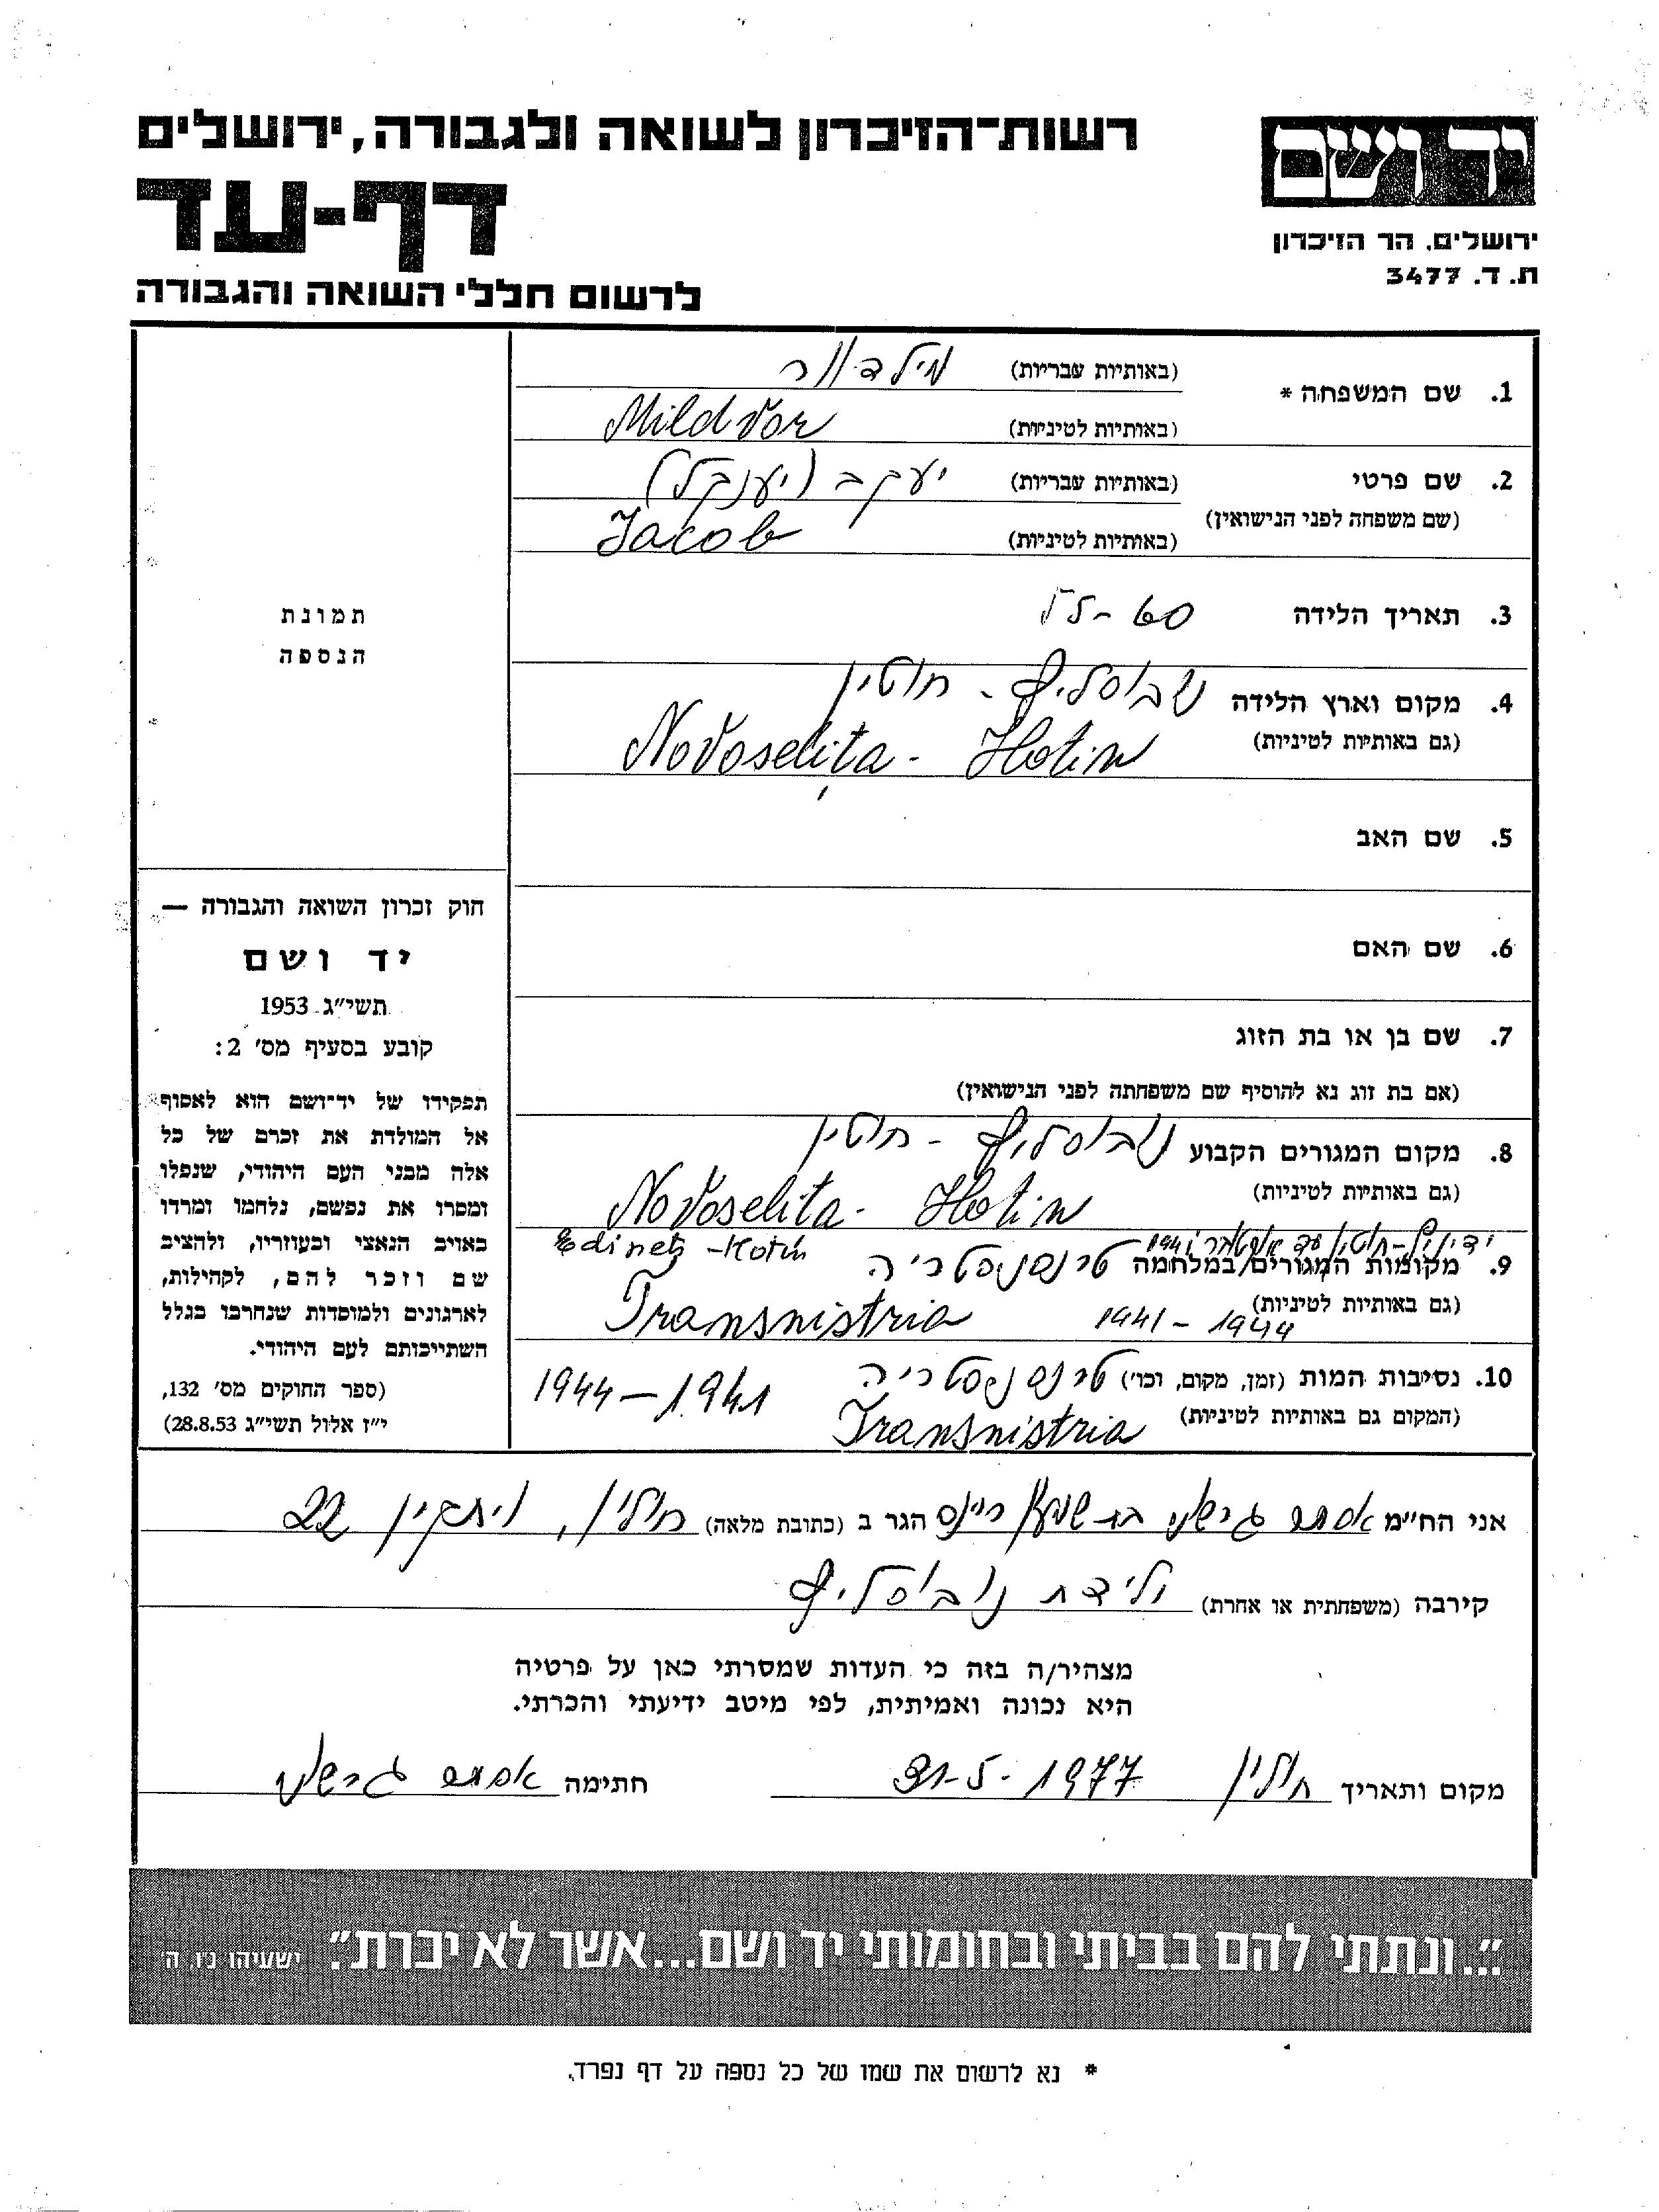 יד ושם
ירושלים, הר הזיכרון
ת. ד. 3477
רשות-הזיכרון לשואה ולגבורה, ירושלים
דף-עד
לרשום חללי השואה והגבורה
1. שם המשפחה * (באותיות עבריות) מילדוור
(באותיות לטיניות) Mildvor
2. שם פרטי (באותיות עבריות) יעקב (יענקל)
(שם משפחה לפני הנישואין) (באותיות לטיניות) Jacob
3. תאריך הלידה 60 -
4. מקום וארץ הלידה נובוסליץ - חוטין
(גם באותיות לטיניות) Novoseliţa - Hotin
5. שם האב
6. שם האם
7. שם בן או בת הזוג
(אם בת זוג נא להוסיף שם משפחתה לפני הנישואין)
8. מקום המגורים הקבוע נובוסליץ - חוטין
(גם באותיות לטיניות) Novoselita - Hotin
ידיניץ - חוטין עד אוקטובר 1941 Edinetz - Hotin
9. מקומות המגורים במלחמה טרנסניסטריה
(גם באותיות לטיניות) 1941 - 1944 Transnistria
10. נסיבות המות (זמן, מקום, וכו') טרנסניסטריה 1944 - 1941
(המקום גם באותיות לטיניות) Transnistria
תמונת
הנספה
חוק זכרון השואה והגבורה —
יד ושם
תשי״ג 1953
קובע בסעיף מס' 2:
תפקידו של יד-ושם הוא לאסוף
אל המולדת את זכרם של כל
אלה מבני העם היהודי, שנפלו
ומסרו את נפשם, נלחמו ומרדו
באויב הנאצי ובעוזריו, ולהציב
שם וזכר להם, לקהילות,
לארגונים ולמוסדות שנחרבו בגלל
השתייכותם לעם היהודי.
(ספר החוקים מס' 132,
י״ז אלול תשי״ג 28.8.53)
אני הח״מ אסתר גרשוני הגר ב (כתובת מלאה) חולון, 22
קירבה (משפחתית או אחרת) ילידת נובוסליץ
מצהיר/ה בזה כי העדות שמסרתי כאן על פרטיה
היא נכונה ואמיתית, לפי מיטב ידיעתי והכרתי.
מקום ותאריך חולון 31-5-1977 חתימה אסתר גרשוני
״...ונתתי להם בביתי ובחומותי יד ושם...אשר לא יכרת״. ישעיהו נ״ו, ה'
* נא לרשום את שמו של כל נספה על דף נפרד.